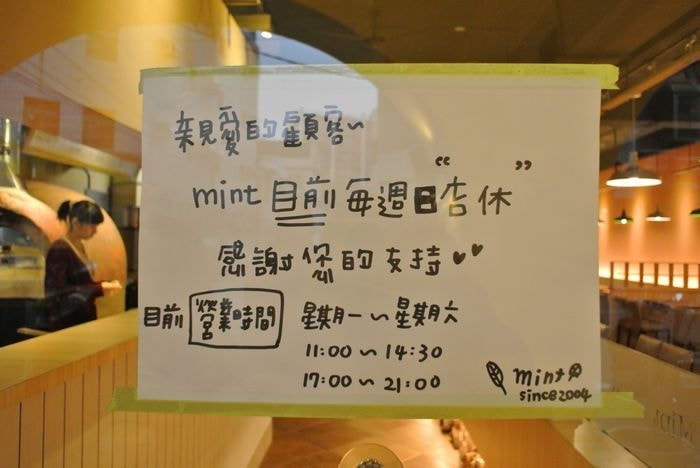 親愛的顧客~
mint 目前每週日"店休"
感謝您的支持
目前 營業時間 星期一~星期六
11:00~14:30
17:00~21:00
mint
since 2004